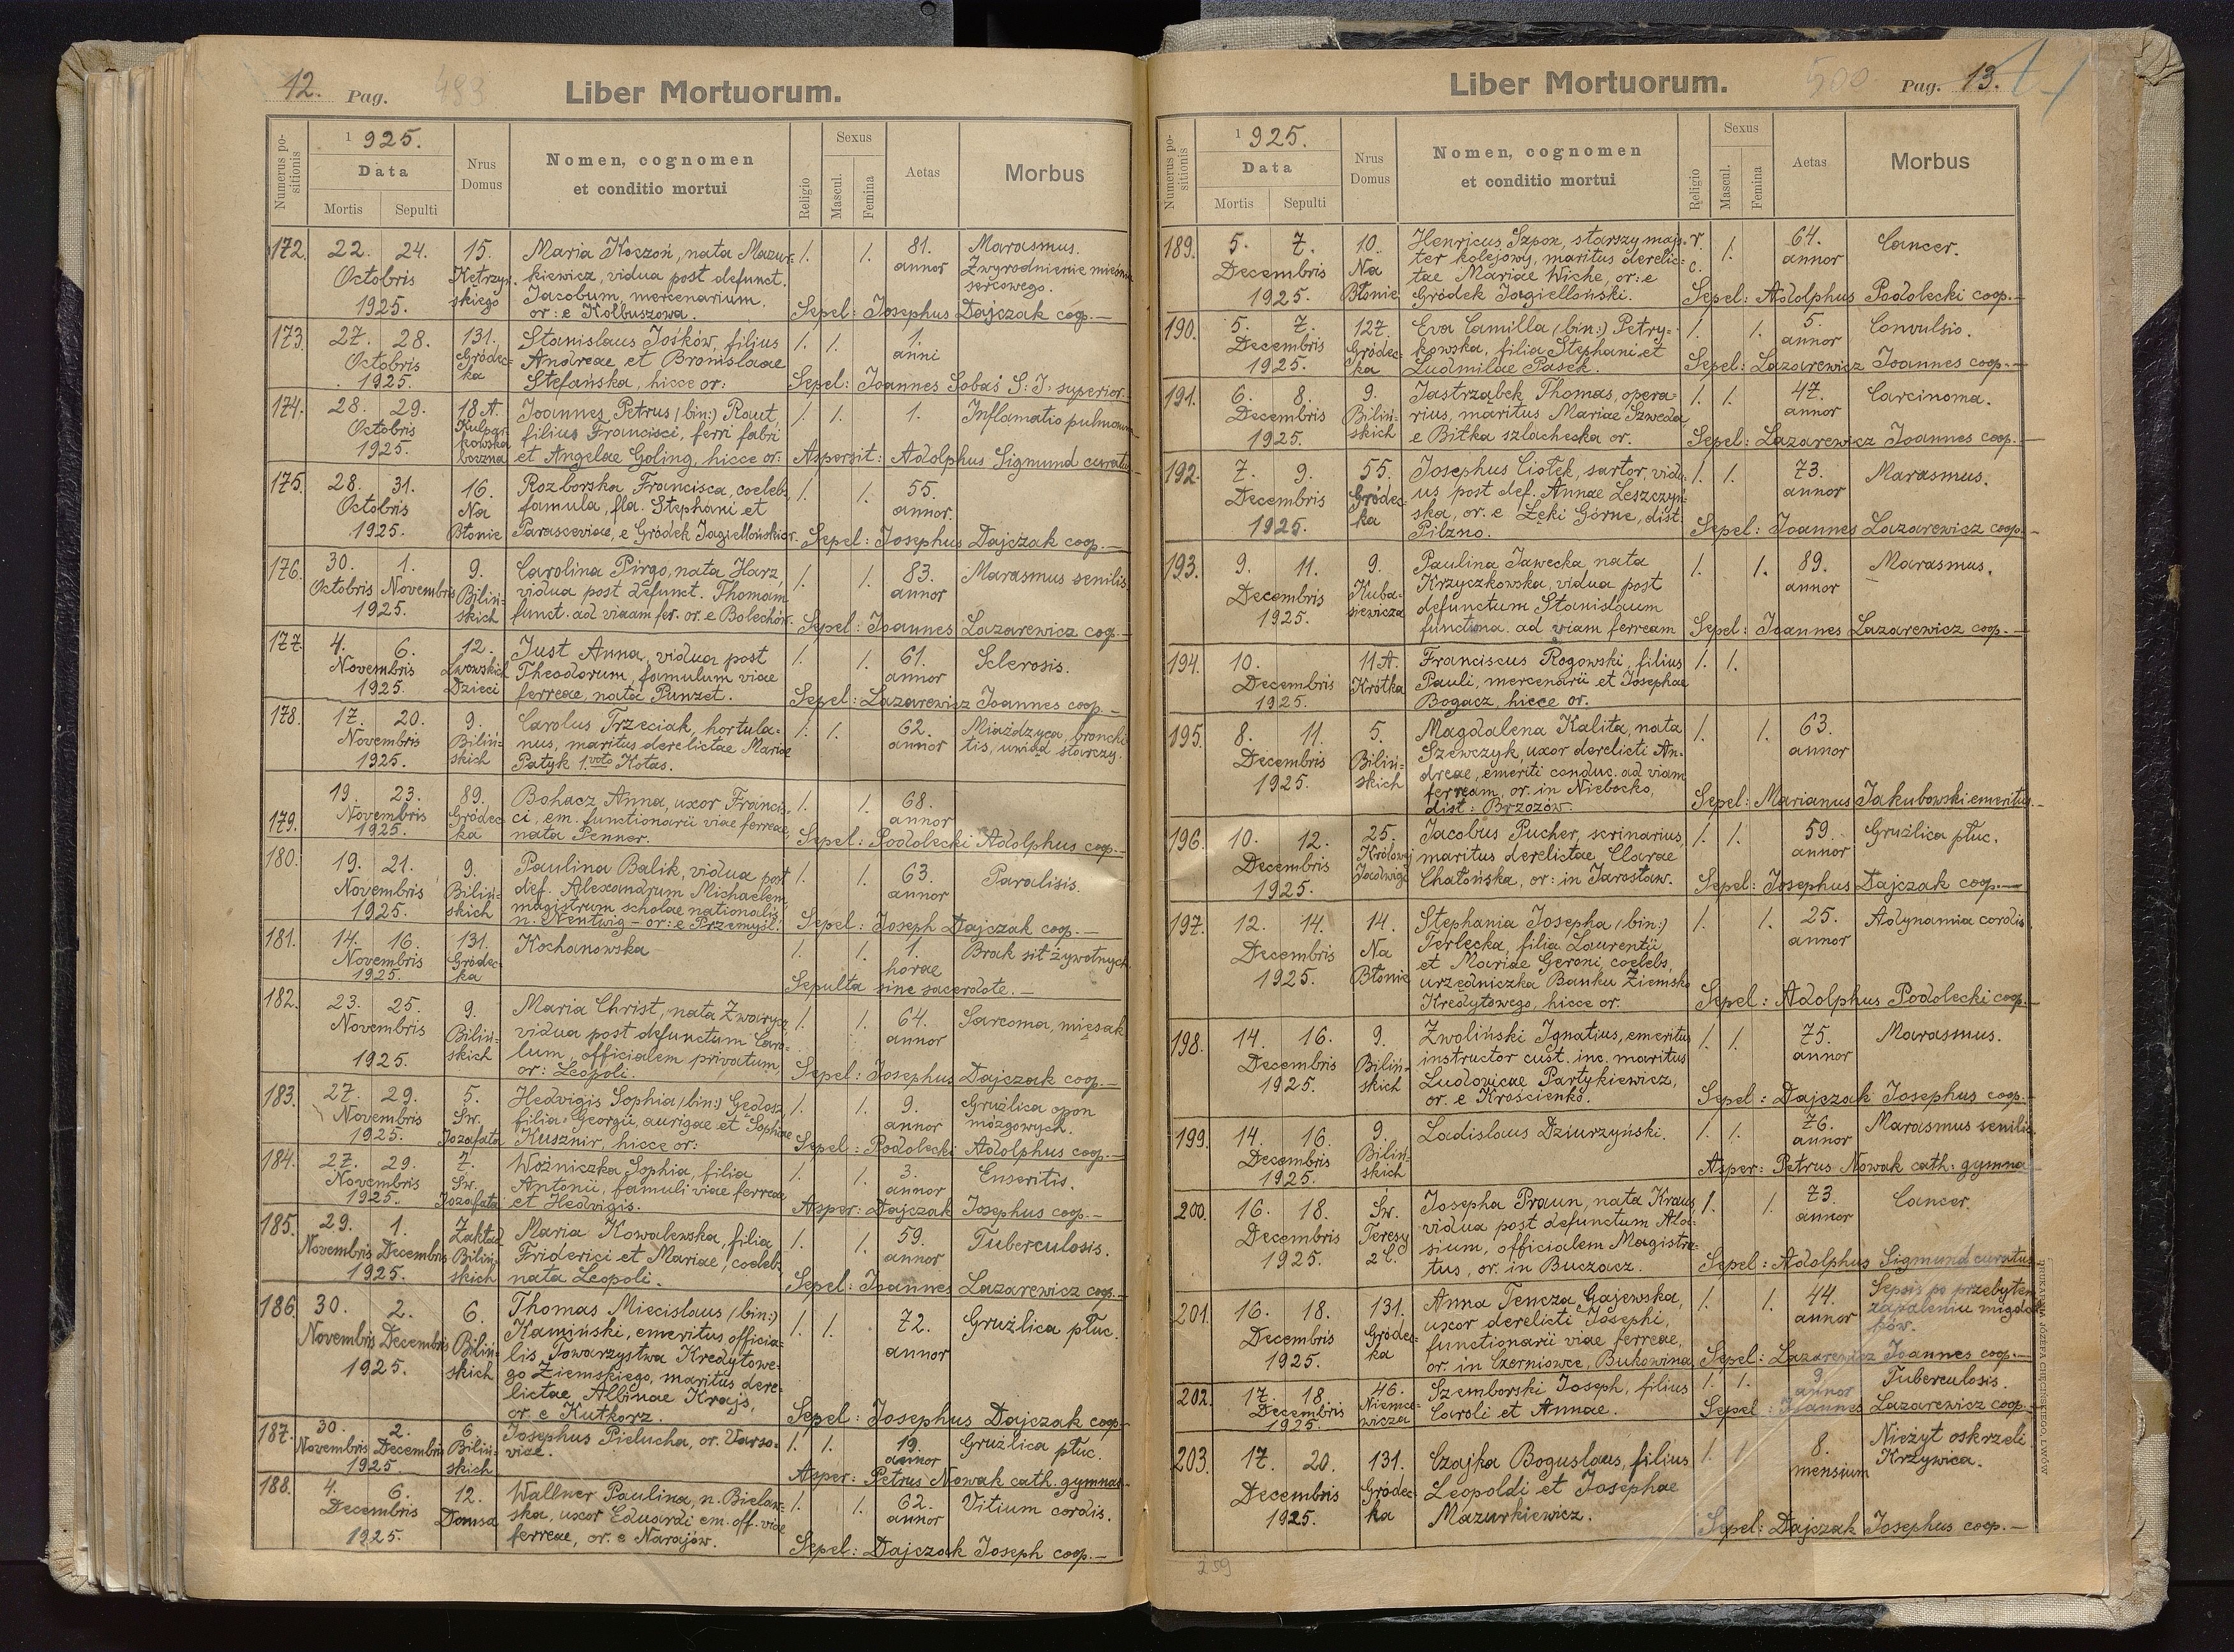 12. Pag. 483
Liber Mortuorum.
Numerus positionis
1 925.
Data
Mortis Sepulti
Nrus Domus
Nomen, cognomen
et conditio mortui
Religio
Sexus
Mascul.
Femina
Aetas
Morbus
172. 22. 24. 15. Maria Koczoń, nata Mazur- 1. 1. 81. Marasmus.
Octobris Kętrzyń- kiewicz, vidua post defunct. annor Zwyrodnienie mięśnia
1925. skiego Jacobum, mercenarium, sercowego.
or: e Kolbuszowa. Sepel: Josephus Dajczak coop. —
173. 27. 28. 131. Stanislaus Jośków, filius 1. 1. 1.
Octobris Gródec- Andreae et Bronislaae anni
1925. ka Stefańska, hicce or: Sepel: Joannes Sobaś S: J. superior.
174. 28. 29. 18 A. Joannes Petrus (bin:) Raut, 1. 1. 1. Inflamatio pulmonum
Octobris Kulpar- filius Francisci, ferri fabri
1925. kowska boczna et Angelae Goling, hicce or: Aspersit: Adolphus Sigmund curatus
175. 28. 31. 16. Rozborska Francisca, coelebs 1. 1. 55.
Octobris Na famula, fla. Stephani et annor.
1925. Błonie Parasceviae, e Gródek Jagielloński or. Sepel: Josephus Dajczak coop. —
176. 30. 1. 9. Carolina Pirgo, nata Harz, 1. 1. 83. Marasmus senilis
Octobris Novembris Biliń- vidua post defunct. Thomam annor
1925. skich funct. ad viaam fer. or. e Bolechów. Sepel: Joannes Lazarewicz coop. —
177. 4. 6. 12. Just Anna, vidua post 1. 1. 61. Sclerosis.
Novembris Lwowskich Theodorum, famulum viae annor
1925. Dzieci ferreae, nata Punzet. Sepel: Lazarewicz Joannes coop. —
178. 17. 20. 9. Carolus Trzeciak, hortula- 1. 1. 62. Miażdzyca, bronchi-
Novembris Biliń- nus, maritus derelictae Mariae annor tis, uwiąd starczy.
1925. skich Patyk 1. voto Kotas.
179. 19. 23. 89. Bohacz Anna, uxor Francis- 1. 1. 68.
Novembris Gródec- ci, em. functionarii viae ferreae, annor
1925. ka nata Penner. Sepel: Podolecki Adolphus coop. —
180. 19. 21. 9. Paulina Balik, vidua post 1. 1. 63. Paralisis.
Novembris Biliń- def. Alexandrum Michaelem, annor
1925. skich magistrum scholae nationalis,
n. Nentwig – or: e Przemyśl. Sepel: Joseph Dajczak coop. —
181. 14. 16. 131. Kochanowska 1. 1. 1. Brak sił żywotnych
Novembris Gródec- horae
1925. ka Sepulta sine sacerdote. —
182. 23. 25. 9. Maria Christ, nata Zwarycz, 1. 1. 64. Sarcoma, mięsak
Novembris Biliń- vidua post defunctum Caro- annor
1925. skich lum, officialem privatum,
or: Leopoli. Sepel: Josephus Dajczak coop. —
183. 27. 29. 5. Hedvigis Sophia (bin:) Gędosz, 1. 1. 9. Gruźlica opon
Novembris Św. filia Georgii, aurigae et Sophiae annor mózgowych.
1925. Jozafata Kusznir, hicce or: Sepel: Podolecki Adolphus coop. —
184. 27. 29. 7. Woźniczka Sophia, filia 1. 1. 3. Enseritis.
Novembris Św. Antonii, famuli viae ferreae annor
1925. Jozafata et Hedvigis. Asper: Dajczak Josephus coop. —
185. 29. 1. Zakład Maria Kowalewska, filia 1. 1. 59. Tuberculosis.
Novembris Decembris Biliń- Friderici et Mariae, coelebs annor
1925. skich nata Leopoli. Sepel: Joannes Lazarewicz coop. —
186. 30. 2. 6. Thomas Miecislaus (bin:) 1. 1. 72. Gruźlica płuc.
Novembris Decembris Biliń- Kamiński, emeritus officia- annor
1925. skich lis Towarzystwa Kredytowe-
go Ziemskiego, maritus dere-
lictae Albinae Krajs,
or. e Kutkorz. Sepel: Josephus Dajczak coop. —
187. 30. 2. 6. Josephus Pielucha, or. Varso- 1. 1. 19. Gruźlica płuc.
Novembris Decembris Biliń- viae. annor
1925. skich Asper: Petrus Nowak cath. gymnas.
188. 4. 6. 12. Wallner Paulina, n. Bielaw- 1. 1. 62. Vitium cordis.
Decembris Domsa ska, uxor Eduardi em. off. viae annor
1925. ferreae, or. e Narajów. Sepel: Dajczak Joseph coop. —
Liber Mortuorum.
500 Pag. 13.
Numerus positionis
1 925.
Data
Mortis Sepulti
Nrus Domus
Nomen, cognomen
et conditio mortui
Religio
Sexus
Mascul.
Femina
Aetas
Morbus
189. 5. 7. 10. Henricus Szpon, starszy majs- r. 1. 64. Cancer.
Decembris Na ter kolejowy, maritus derelic- c. annor
1925. Błonie tae Mariae Wiche, or: e
Gródek Jagielloński. Sepel: Adolphus Podolecki coop. —
190. 5. 7. 127. Eva Camilla (bin:) Petry- 1. 1. 5. Convulsio.
Decembris Gródec- kowska, filia Stephani et annor
1925. ka Ludmilae Pasek. Sepel: Lazarewicz Joannes coop. —
191. 6. 8. 9. Jastrząbek Thomas, opera- 1. 1. 47. Carcinoma.
Decembris Biliń- rius, maritus Mariae Szweda, annor
1925. skich e Bitka szlachecka or. Sepel: Lazarewicz Joannes coop. —
192. 7. 9. 55. Josephus Ciołek, sartor, vidu- 1. 1. 73. Marasmus.
Decembris Gródec- us post def. Annae Leszczyń- annor
1925. ka ska, or. e Łęki Górne, dist.
Pilzno. Sepel: Joannes Lazarewicz coop. —
193. 9. 11. 9. Paulina Jawecka nata 1. 1. 89. Marasmus.
Decembris Kuba- Krzyczkowska, vidua post annor
1925. siewicza defunctum Stanislaum
functiona. ad viam ferream Sepel: Joannes Lazarewicz coop. —
194. 10. 11 A. Franciscus Rogowski, filius 1. 1.
Decembris Krótka Pauli, mercenarii et Josephae
1925. Bogacz, hicce or.
195. 8. 11. 5. Magdalena Kalita, nata 1. 1. 63.
Decembris Biliń- Szewczyk, uxor derelicti An- annor
1925. skich dreae, emeriti conduc. ad viam
ferream, or. in Niebocko,
dist: Brzozów. Sepel: Marianus Jakubowski emeritus. —
196. 10. 12. 25. Jacobus Pucher, scrinarius, 1. 1. 59. Gruźlica płuc.
Decembris Królowej maritus derelictae Clarae annor
1925. Jadwigi Chatońska, or: in Jarosław. Sepel: Josephus Dajczak coop. —
197. 12. 14. 14. Stephania Josepha (bin:) 1. 1. 25. Adynamia cordis.
Decembris Na Terlecka, filia Laurentii annor
1925. Błonie et Mariae Geroni, coelebs,
urzędniczka Banku Ziemsko
Kredytowego, hicce or. Sepel: Adolphus Podolecki coop. —
198. 14. 16. 9. Zwoliński Ignatius, emeritus 1. 1. 75. Marasmus.
Decembris Biliń- instructor cust. inc. maritus annor
1925. skich Ludovicae Partykiewicz,
or. e Krościenko. Sepel: Dajczak Josephus coop. —
199. 14. 16. 9. Ladislaus Dziurzyński. 1. 1. 76. Marasmus senilis
Decembris Biliń- annor
1925. skich Asper: Petrus Nowak cath: gymna
200. 16. 18. Św. Josepha Praun, nata Kraus, 1. 1. 73. Cancer.
Decembris Teresy vidua post defunctum Alo- annor
1925. 2 C. sium, officialem Magistra-
tus, or. in Buczacz. Sepel: Adolphus Sigmund curatus
201. 16. 18. 131. Anna Tencza Gajewska, 1. 1. 44. Sepsis po przebytem
Decembris Gródec- uxor derelicti Josephi, annor zapaleniu migdał-
1925. ka functionarii viae ferreae, ków.
or. in Czerniowce, Bukowina Sepel: Lazarewicz Joannes coop. —
202. 17. 18. 46. Szemborski Joseph, filius 1. 1. 9. Tuberculosis.
Decembris Niemce- Caroli et Annae. annor
1925. wicza Sepel: Joannes Lazarewicz coop. —
203. 17. 20. 131. Czajka Boguslaus, filius 1. 1. 8. Nieżyt oskrzeli
Decembris Gródec- Leopoldi et Josephae mensium Krzywica.
1925. ka Mazurkiewicz.
Sepel: Dajczak Josephus coop. —
259